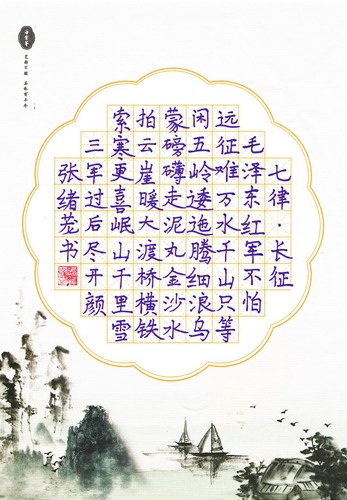 七律·长征
毛泽东红军不怕
远征难万水千山只等
闲五岭逶迤腾细浪乌
蒙磅礴走泥丸金沙水
拍云崖暖大渡桥横铁
索寒更喜岷山千里雪
三军过后尽开颜
张绪书